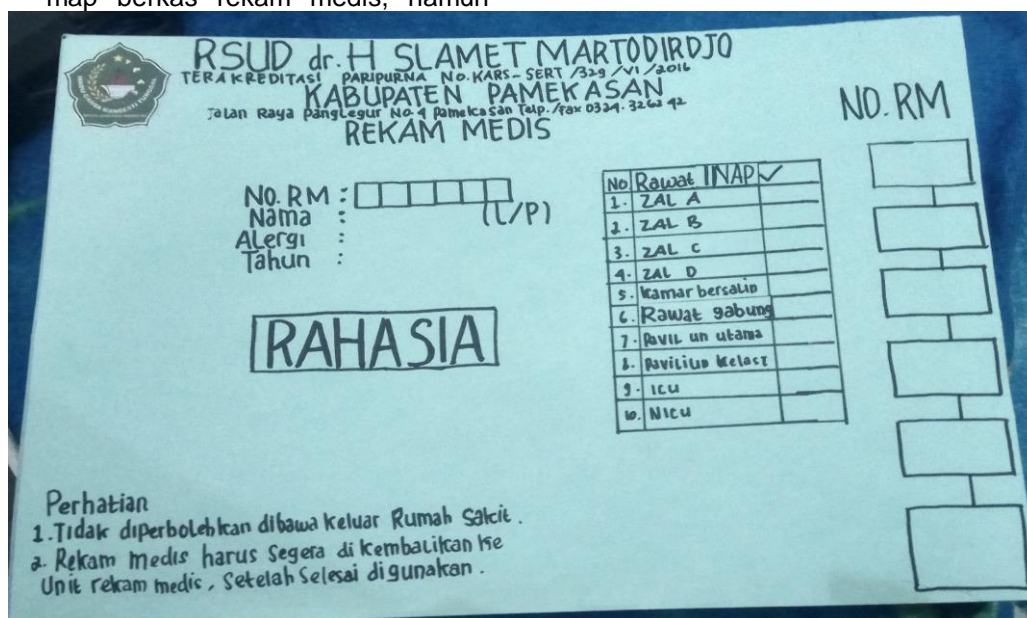 map berkas rekam medis, namun
RSUD dr. H SLAMET MARTODIRDJO
TERAKREDITASI PARIPURNA NO. KARS-SERT /329/VI/2016
KABUPATEN PAMEKASAN
Jalan Raya Panglegur No. 4 Pamekasan Telp./Fax 0324. 3262 92
REKAM MEDIS
NO. RM
NO. RM :
Nama : (L/P)
ALergi :
Tahun :
RAHASIA
No Rawat INAP ✓
1. ZAL A
2. ZAL B
3. ZAL C
4. ZAL D
5. Kamar bersalin
6. Rawat gabung
7. Pavil un utama
8. Paviliun Kelas I
9. ICU
10. NICU
Perhatian
1. Tidak diperbolehkan dibawa keluar Rumah Sakit.
2. Rekam Medis harus Segera di kembalikan ke
Unit rekam medis, Setelah Selesai digunakan.